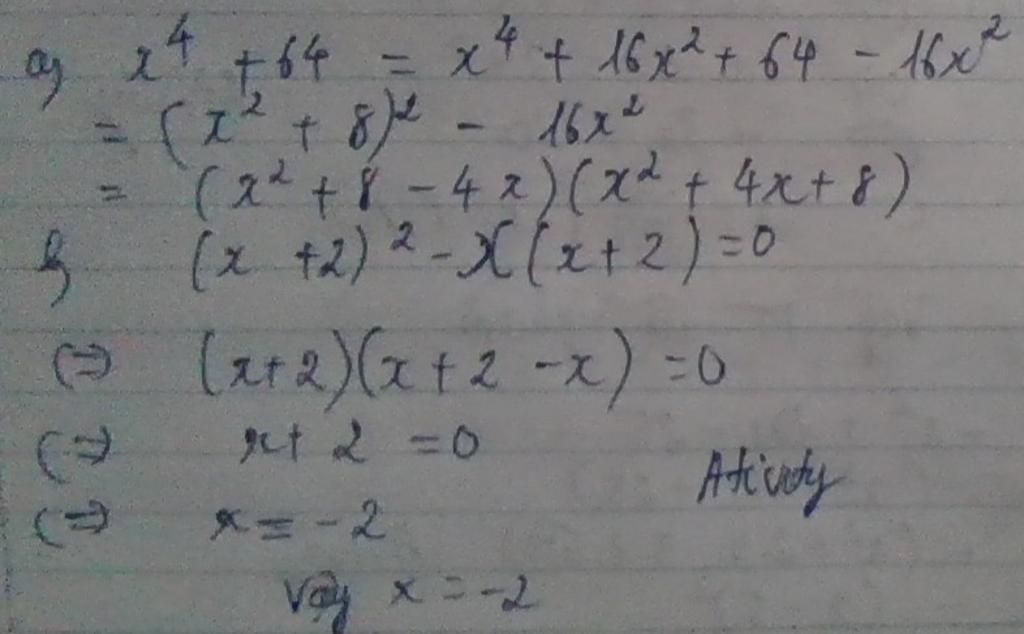 a) x⁴ + 64 = x⁴ + 16x² + 64 - 16x²
= (x² + 8)² - 16x²
= (x² + 8 - 4x)(x² + 4x + 8)
b) (x + 2)² - x(x + 2) = 0
⇔ (x + 2)(x + 2 - x) = 0
⇔ x + 2 = 0
⇔ x = -2
Vậy x = -2